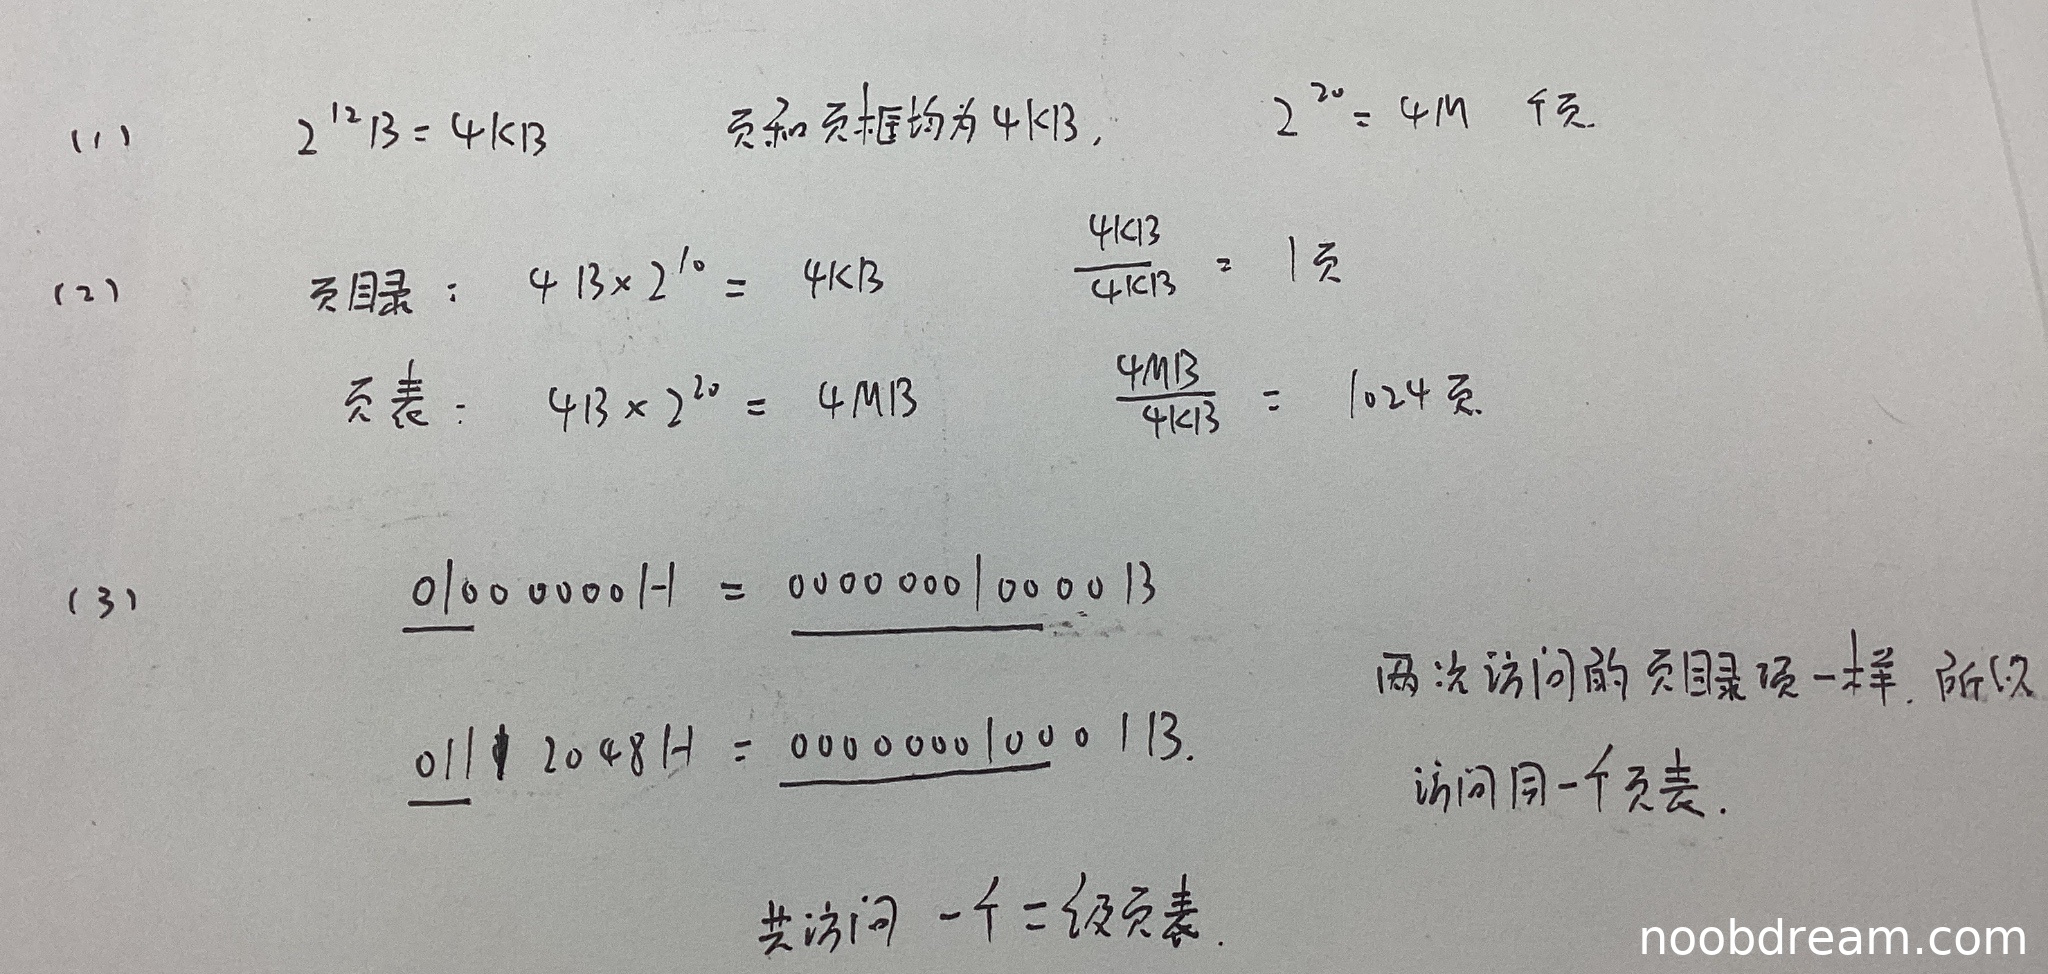 (1) 2^12 B = 4KB 页和页框均为4KB, 2^20 = 4M 个页.
(2) 页目录: 4B×2^10 = 4KB 4KB/4KB = 1页
页表: 4B×2^20 = 4MB 4MB/4KB = 1024页.
(3) 01000000H = 000000010000B
两次访问的页目录项一样. 所以
01112048H = 000000010001B.
访问同一个页表.
共访问一个二级页表.
noobdream.com